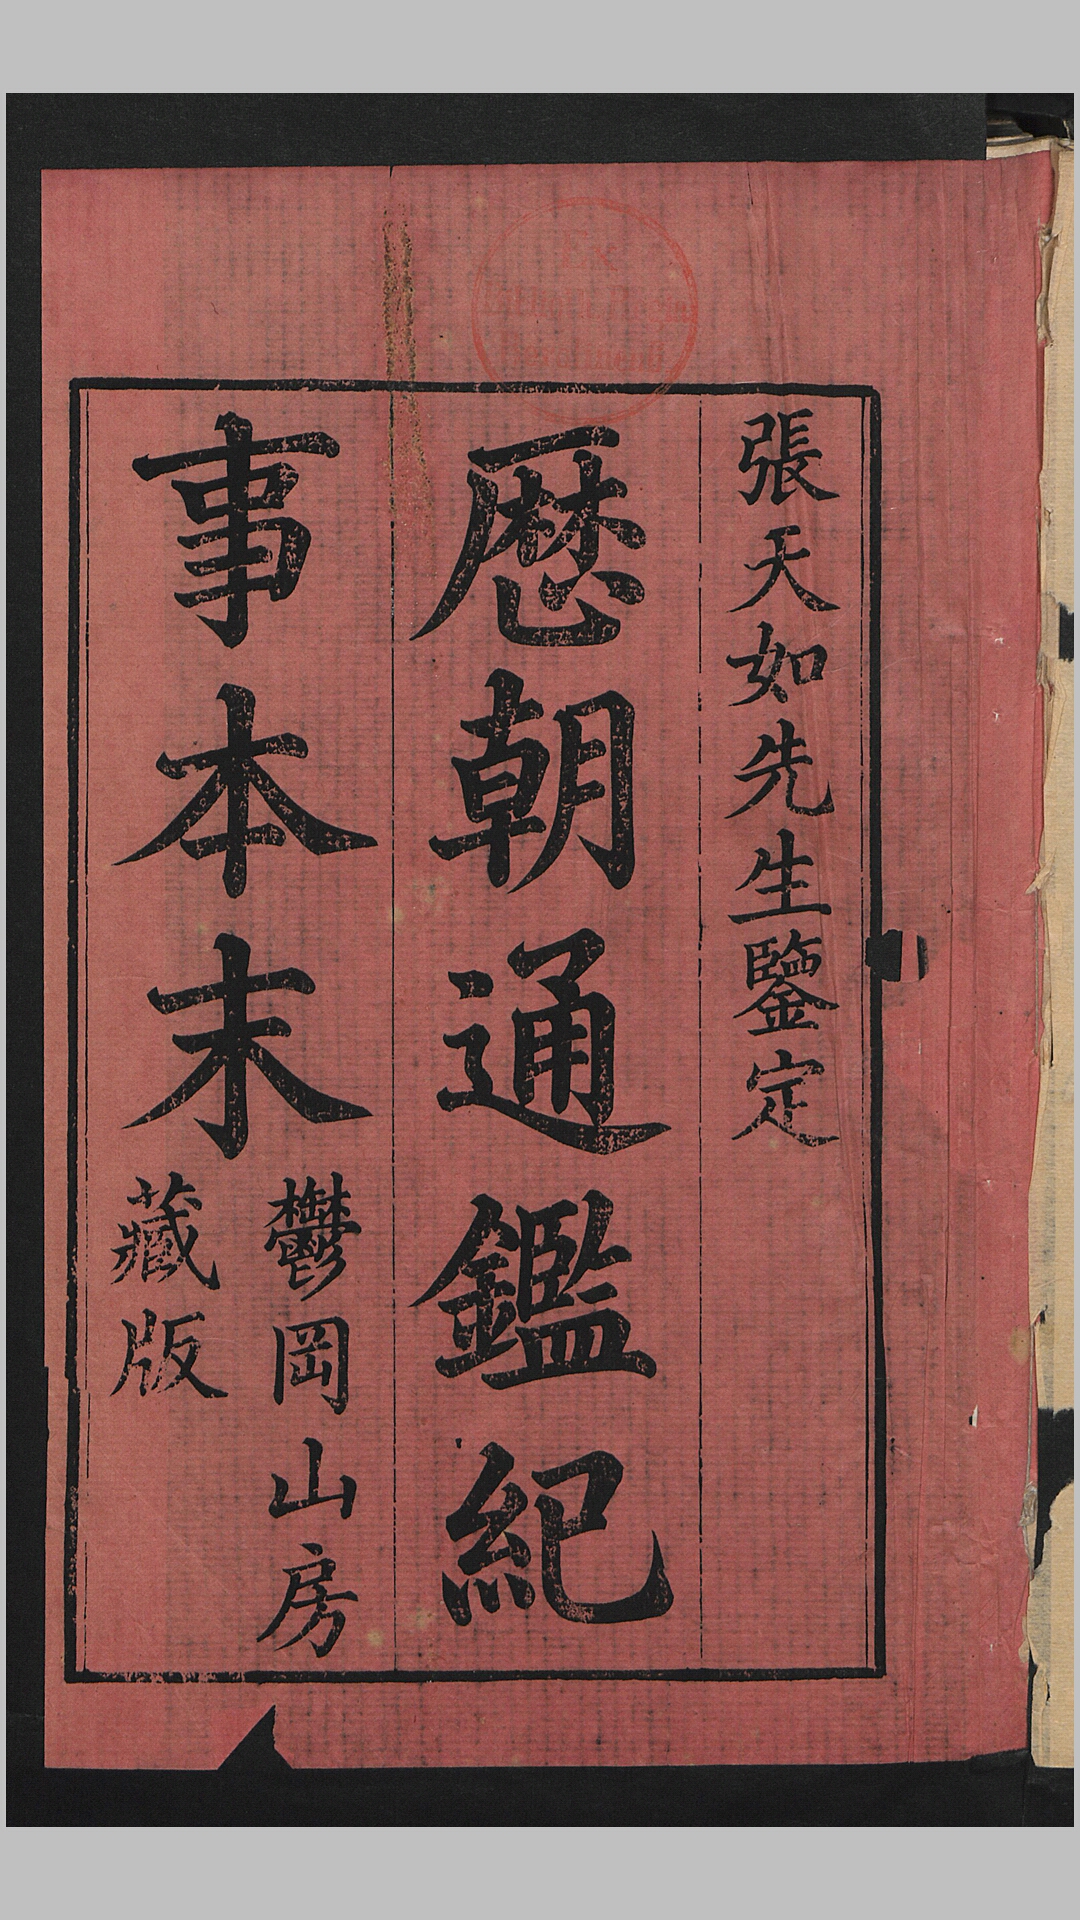 張天如先生鑒定
厯朝通鑑紀
事本末
鬱岡山房
藏版
Ex